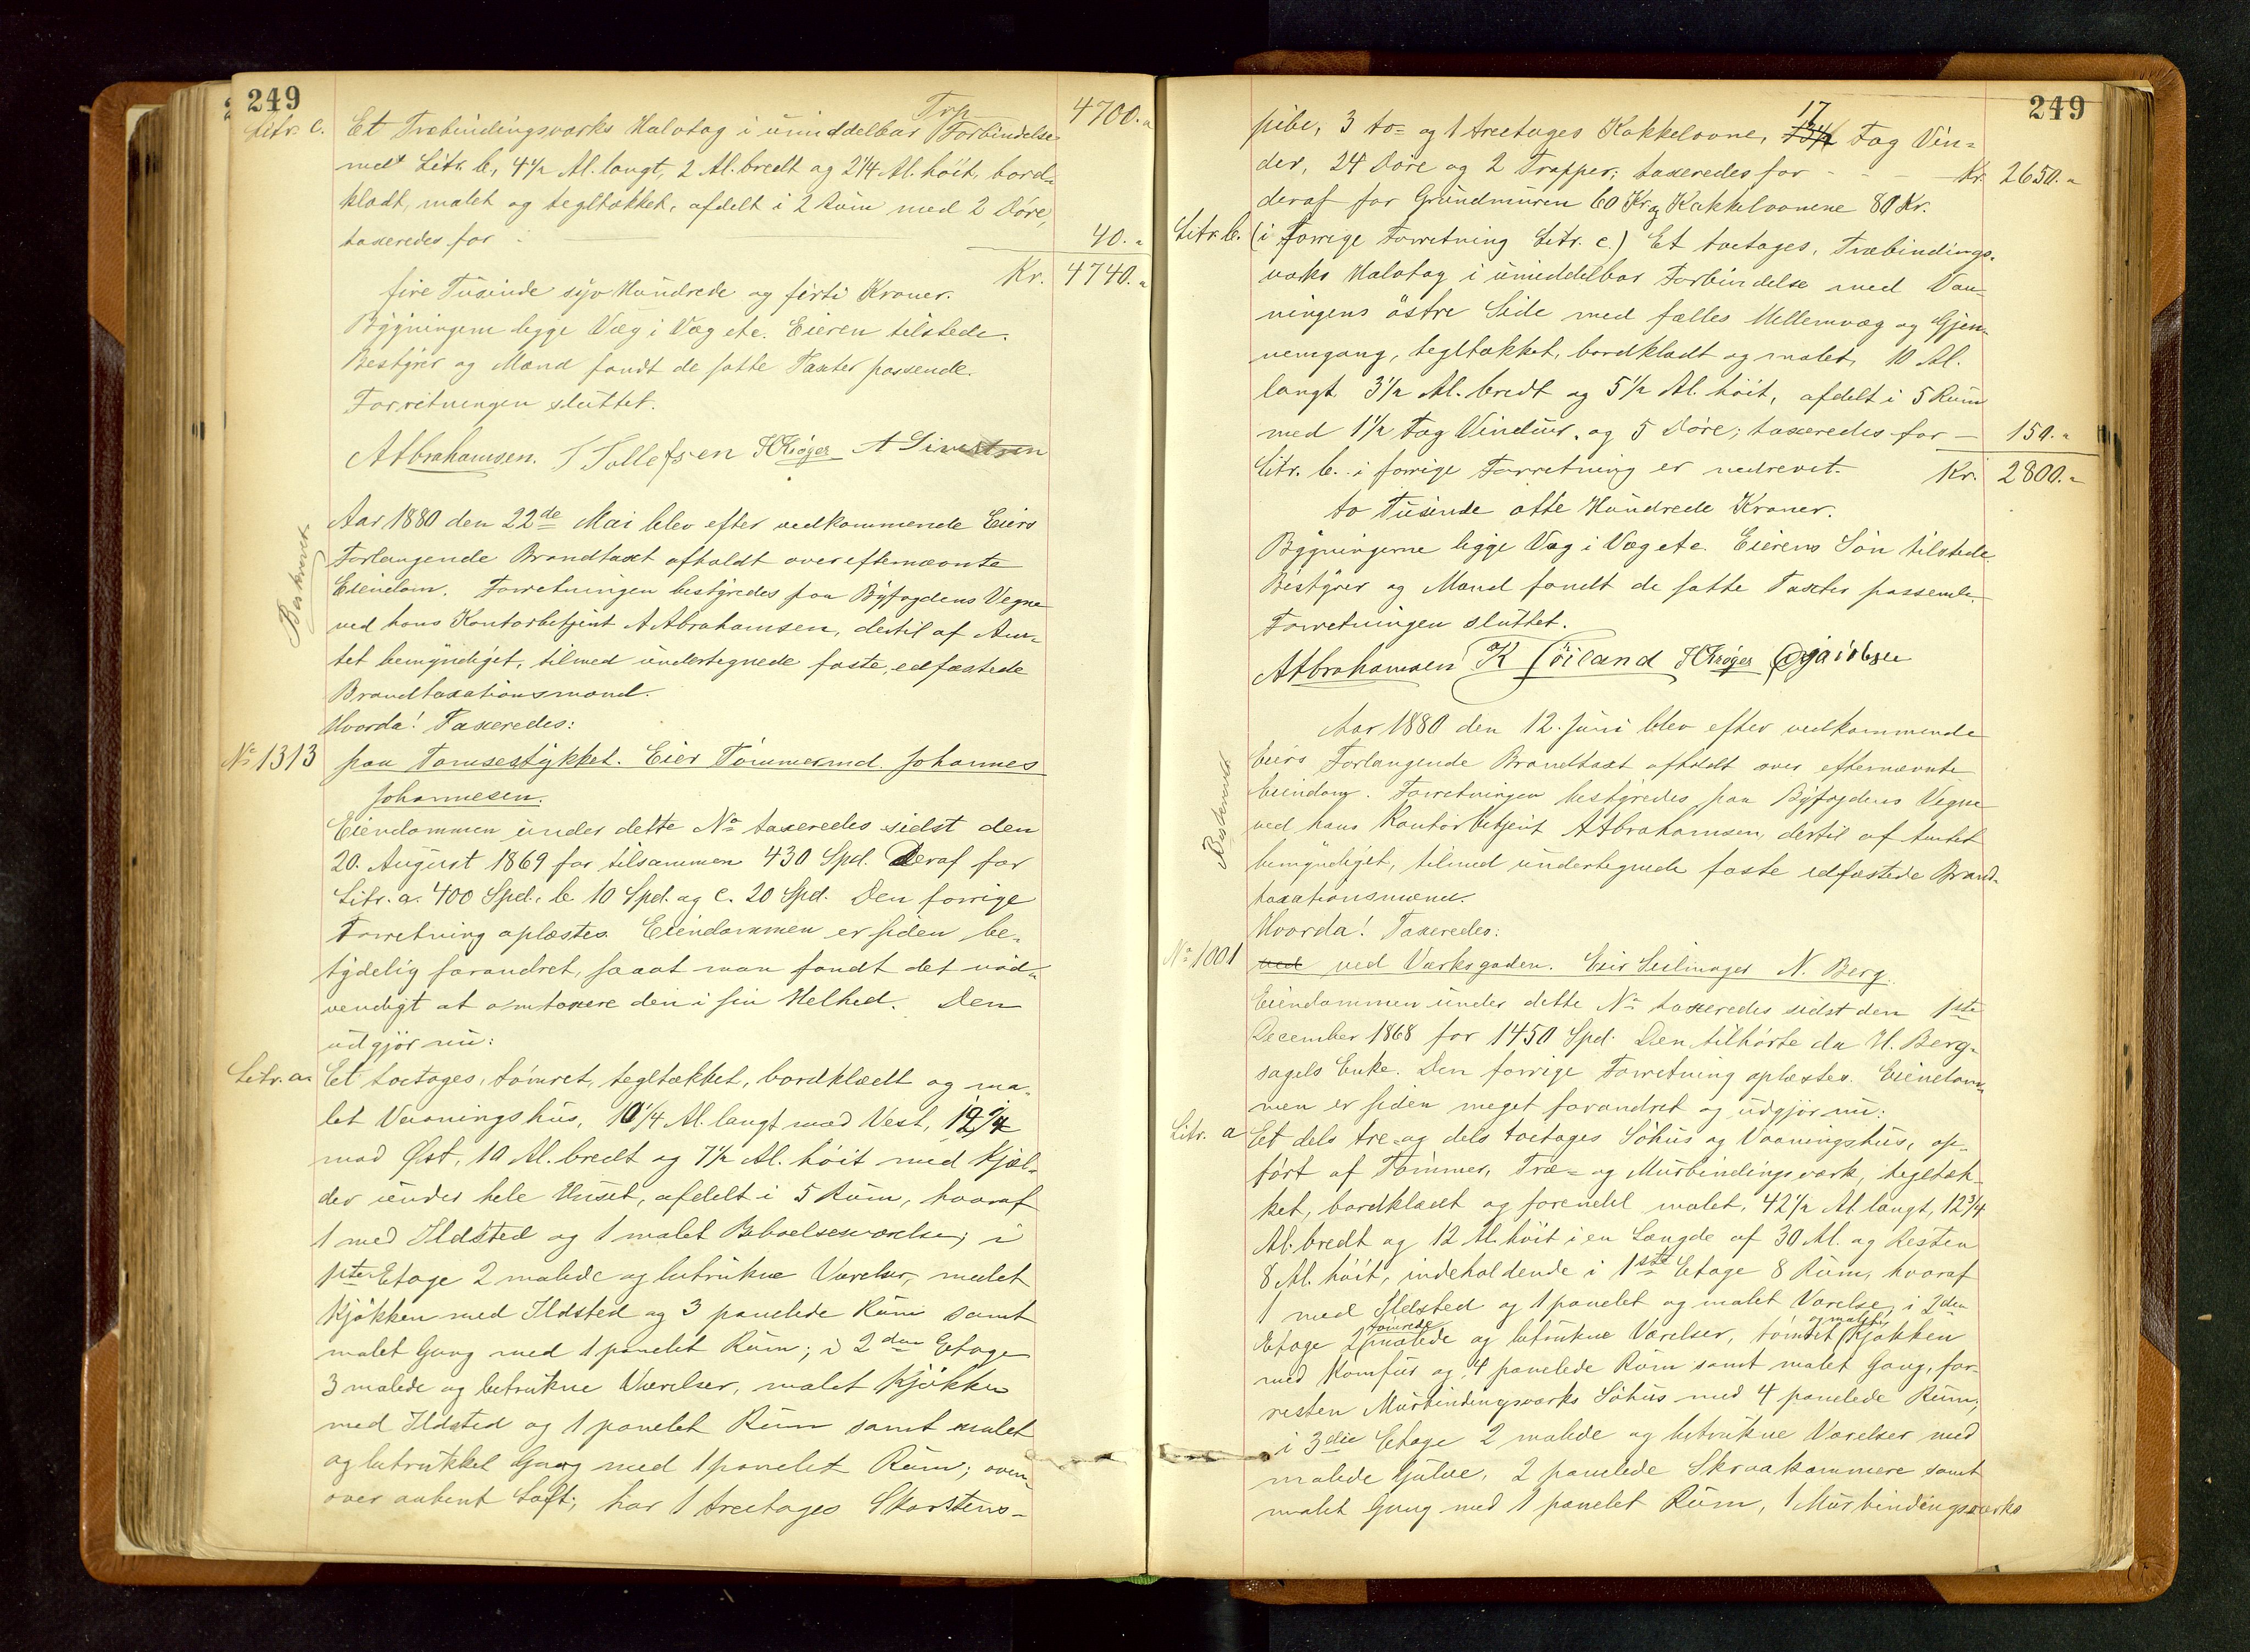 249
Trp 4700.„
Litr. c. Et Træbindingsværks Halvtag i umiddelbar Forbindelse
med Litr. b, 4 1/2 Al. langt, 2 Al. bredt og 2 1/4 Al. höit, bord-
klædt, malet og tegltækket, afdelt i 2 Rum med 2 Döre,
taxeredes for 40.„
Kr. 4740.„
fire Tusinde syv Hundrede og firti Kroner.
Bygningerne ligge Væg i Væg etc. Eieren tilstede.
Bestyrer og Mænd fandt de satte Taxter passende.
Forretningen sluttet.
AAbrahamsen. T Tollefsen HKröger A Sivertsen
Beskrevet
Aar 1880 den 22de Mai blev efter vedkommende Eiers
Forlangende Brandtaxt afholdt over efternævnte
Eiendom. Forretningen bestyredes paa Byfogdens Vegne
ved hans Kontorbetjent A Abrahamsen, dertil af Am-
tet bemyndiget, tilmed undertegnede faste, edfæstede
Brandtaxationsmænd.
Hvorda! Taxeredes:
No 1313 paa Tomsestykket. Eier Tömmermd. Johannes
Johannesen.
Eiendommen under dette No taxeredes sidst den
20. August 1869 for tilsammen 430 Spd. Deraf for
Litr. a. 400 Spd., b. 10 Spd. og c. 20 Spd. Den forrige
Forretning oplæstes. Eiendommen er siden be-
tydelig forandret, saaat man fandt det nöd-
vendigt at omtaxere den i sin Helhed. Den
udgjör nu:
Litr. a. Et toetages, tömret, tegltækket, bordklædt og ma-
let Vaaningshus, 10 1/4 Al. langt mod Vest, 12 1/4
mod Öst, 10 Al. bredt og 7 1/2 Al. höit med Kjæl-
der under hele Huset, afdelt i 5 Rum, hvoraf
1 med Ildsted og 1 malet Beboelsesværelse; i
1ste Etage 2 malede og betrukne Værelser, malet
Kjökken med Ildsted og 3 panelede Rum samt
malet Gang med 1 panelet Rum; i 2den Etage
3 malede og betrukne Værelser, malet Kjökken
med Ildsted og 1 panelet Rum samt malet
og betrukket Gang med 1 panelet Rum; oven-
over aabent Loft; har 1 treetages Skorstens-
249
pibe, 3 to- og 1 treetages Kakkelovne, 17 Fag Vin-
der, 24 Döre og 2 Trapper; taxeredes for - - - Kr. 2650.„
deraf for Grundmuren 60 Kr. og Kakkelovnene 80 Kr.
Litr. b. (i forrige Forretning Litr. c.) Et toetages, Træbindings-
værks Halvtag i umiddelbar Forbindelse med Vaa-
ningens östre Side med fælles Mellemvæg og Gjen-
nemgang, tegltækket, bordklædt og malet, 10 Al.
langt, 3 1/2 Al. bredt og 5 1/2 Al. höit, afdelt i 5 Rum
med 1 1/2 Fag Vinduer og 5 Döre; taxeredes for - 150.„
Litr. b. i forrige Forretning er nedrevet. Kr. 2800.„
to Tusinde otte Hundrede Kroner.
Bygningerne ligge Væg i Væg etc. Eierens Sön tilstede.
Bestyrer og Mænd fandt de satte Taxter passende.
Forretningen sluttet.
AAbrahamsen K Söiland HKröger Jacobsen
Beskrevet
Aar 1880 den 12. Juni blev efter vedkommende
Eiers Forlangende Brandtaxt afholdt over efternævnte
Eiendom. Forretningen bestyredes paa Byfogdens Vegne
ved hans Kontorbetjent AAbrahamsen, dertil af Amtet
bemyndiget, tilmed undertegnede faste edfæstede Brand-
taxationsmænd.
Hvorda! Taxeredes:
No 1001 ved ved Værksgaden. Eier Seilmager N. Berg.
Eiendommen under dette No taxeredes sidst den 1ste
December 1868 for 1450 Spd. Den tilhörte da H. Berg-
sagels Enke. Den forrige Forretning oplæstes. Eiendom-
men er siden meget forandret og udgjör nu:
Litr. a Et dels tre- og dels toetages Söhus og Vaaningshus, op-
fört af Tömmer, Træ- og Murbindingsværk, tegltæk-
ket, bordklædt og forendel malet, 42 1/2 Al. langt, 12 3/4
Al. bredt og 12 Al. höit i en Længde af 30 Al. og Resten
8 Al. höit, indeholdende i 1ste Etage 8 Rum, hvoraf
1 med Ildsted og 1 panelet og malet Værelse, i 2den
Etage 2 tömrede malede og betrukne Værelser, tömret og malet Kjökken
med Komfur og 4 panelede Rum samt malet Gang, for-
resten Murbindingsværks Söhus med 4 panelede Rum;
i 3die Etage 2 malede og betrukne Værelser med
malede Gulve, 2 panelede Skraakammere samt
malet Gang med 1 panelet Rum, 1 Murbindingsværks